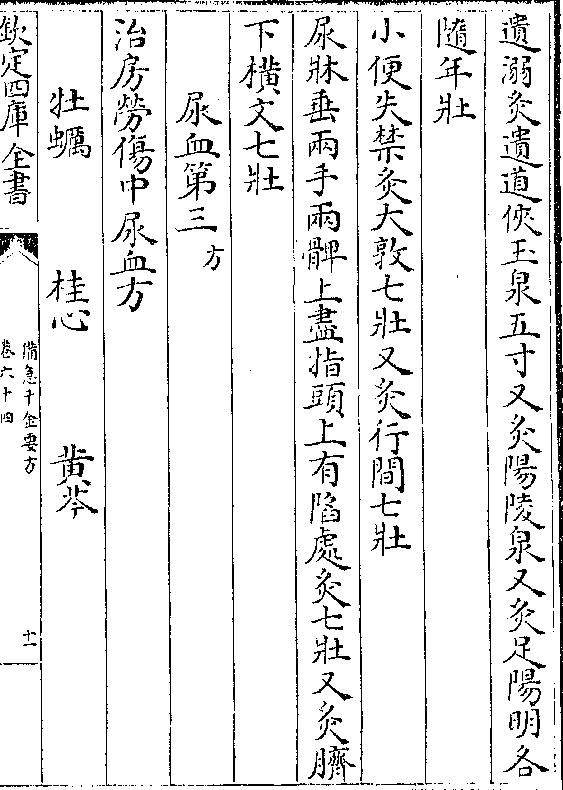 遺溺灸遺道俠玉泉五寸又灸陽陵泉又灸足陽明各
隨年壯
小便失禁灸大敦七壯又灸行間七壯
尿牀垂兩手兩髀上盡指頭上有陷處灸七壯又灸臍
下橫文七壯
尿血第三方
治房勞傷中尿血方
牡蠣 桂心 黄芩
欽定四庫全書
備急千金要方
卷六十四
十一